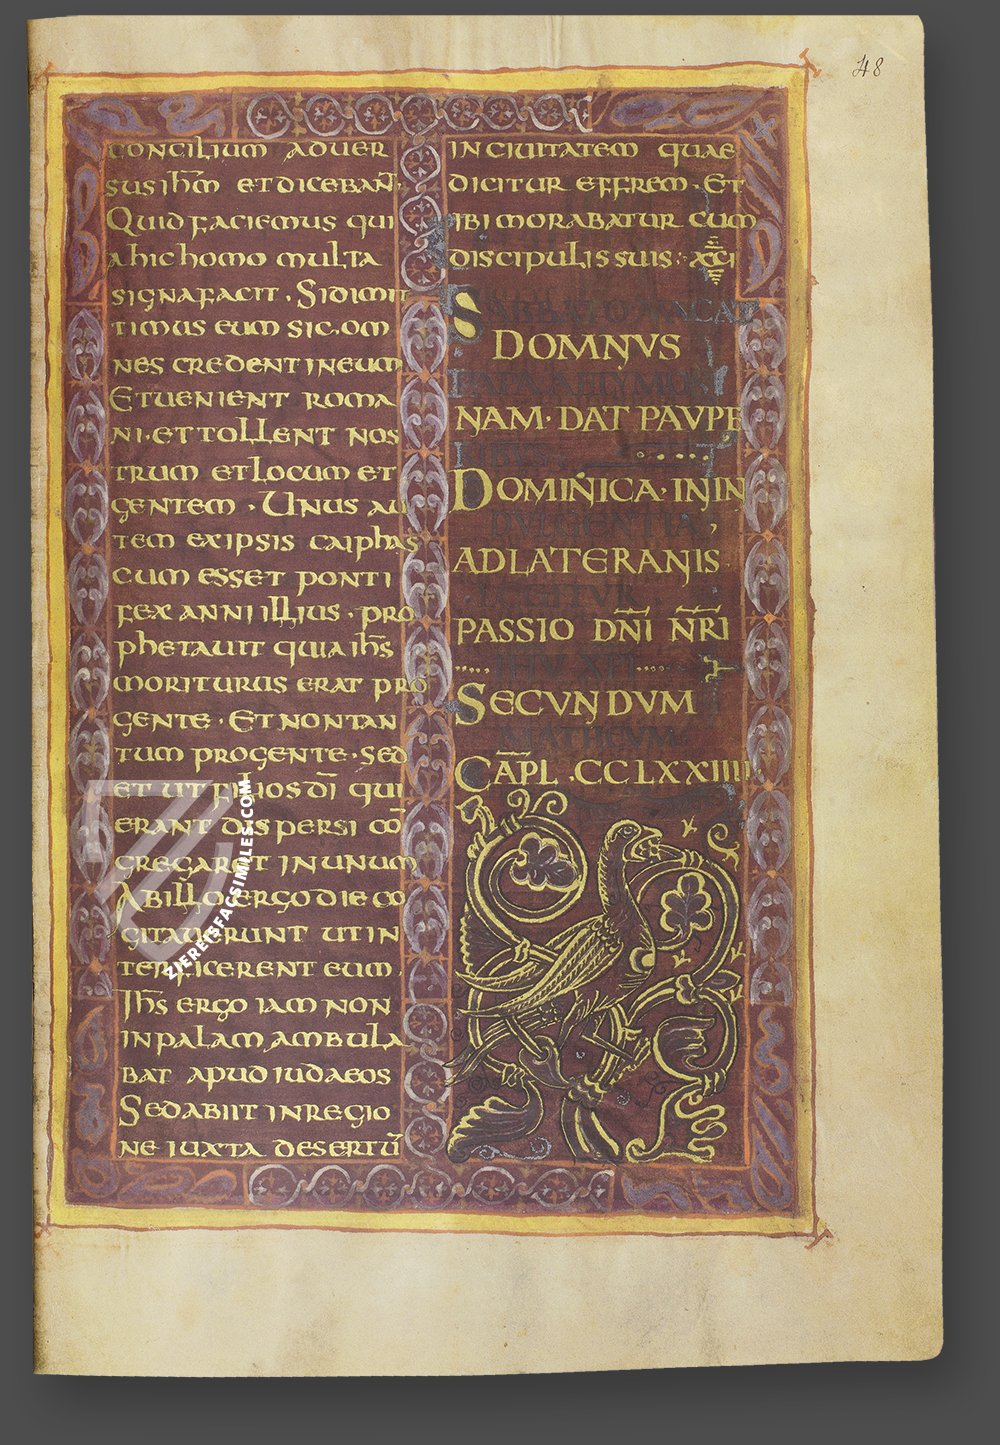 48
CONCILIUM ADUER
SUS IHM̄ ET DICEBANT̄.
QUID FACIEMUS QUI
A HIC HOMO MULTA
SIGNA FACIT. SI DIMIT
TIMUS EUM SIC. OM
NES CREDENT IN EUM
ET UENIENT ROMA
NI. ET TOLLENT NOS
TRUM ET LOCUM ET
GENTEM. UNUS AU
TEM EX IPSIS CAIPHAS
CUM ESSET PONTI
FEX ANNI ILLIUS. PRO
PHETAUIT QUIA IHS̄
MORITURUS ERAT PRO
GENTE. ET NON TAN
TUM PRO GENTE. SED
ET UT FILIOS DĪ QUI
ERANT DISPERSI CŌ
GREGARET IN UNUM
AB ILLO ERGO DIE CO
GITAUERUNT UT IN
TERFICERENT EUM.
IHS̄ ERGO IAM NON
IN PALAM AMBULA
BAT APUD IUDAEOS
SED ABIIT IN REGIO
NE IUXTA DESERTŪ
IN CIUITATEM QUAE
DICITUR EFFREM. ET
IBI MORABATUR CUM
DISCIPULIS SUIS: XCI
SABBATO VACAT
DOMNVS
PAPA AELYMOSI
NAM. DAT PAVPE
RIBVS
DOMINICA. IN IN
DVLGENTIA
AD LATERANIS
LEGITVR
PASSIO DN̄I NR̄I
IHV XPI
SECVNDVM
MATHEVM
CAP̄L. CCLXXIIII
ZIEREISFACSIMILES.COM